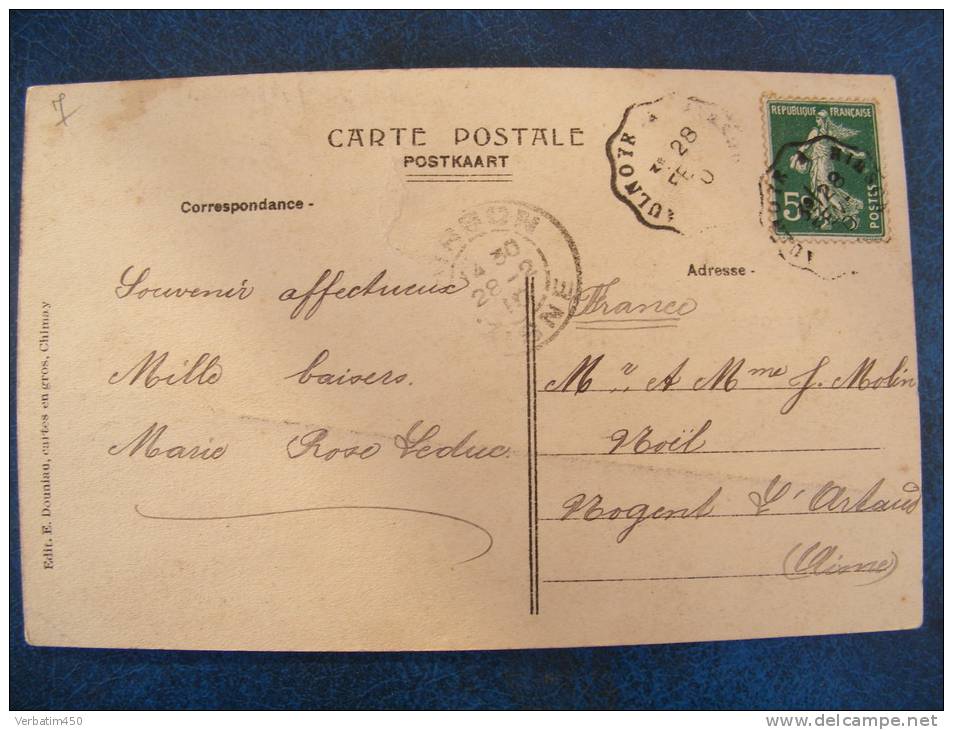 7
CARTE POSTALE
POSTKAART
Correspondance -
Adresse -
REPUBLIQUE FRANÇAISE
5
POSTES
AULNOYE A
28
AULNOYE A
28
30
28
Souvenir affectueux
Mille baisers.
Marie Rose Leduc.
France
Mr et Mme J. Molin
Noël
Nogent L'Artaud
(Aisne)
Edit. E. Douniau, cartes en gros, Chimay
Verbatim450
www.delcampe.net